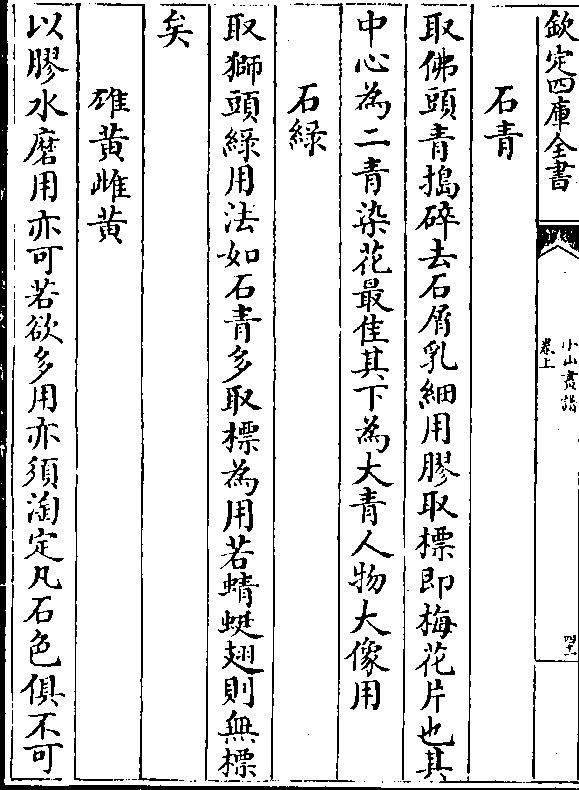 欽定四庫全書
小山畫譜
卷上
石青
取佛頭青搗碎去石屑乳細用膠取標即梅花片也其
中心為二青染花最佳其下為大青人物大像用
石緑
取獅頭緑用法如石青多取標為用若蜻蜓翅則無標
矣
雄黄雌黄
以膠水磨用亦可若欲多用亦須淘定凡石色俱不可